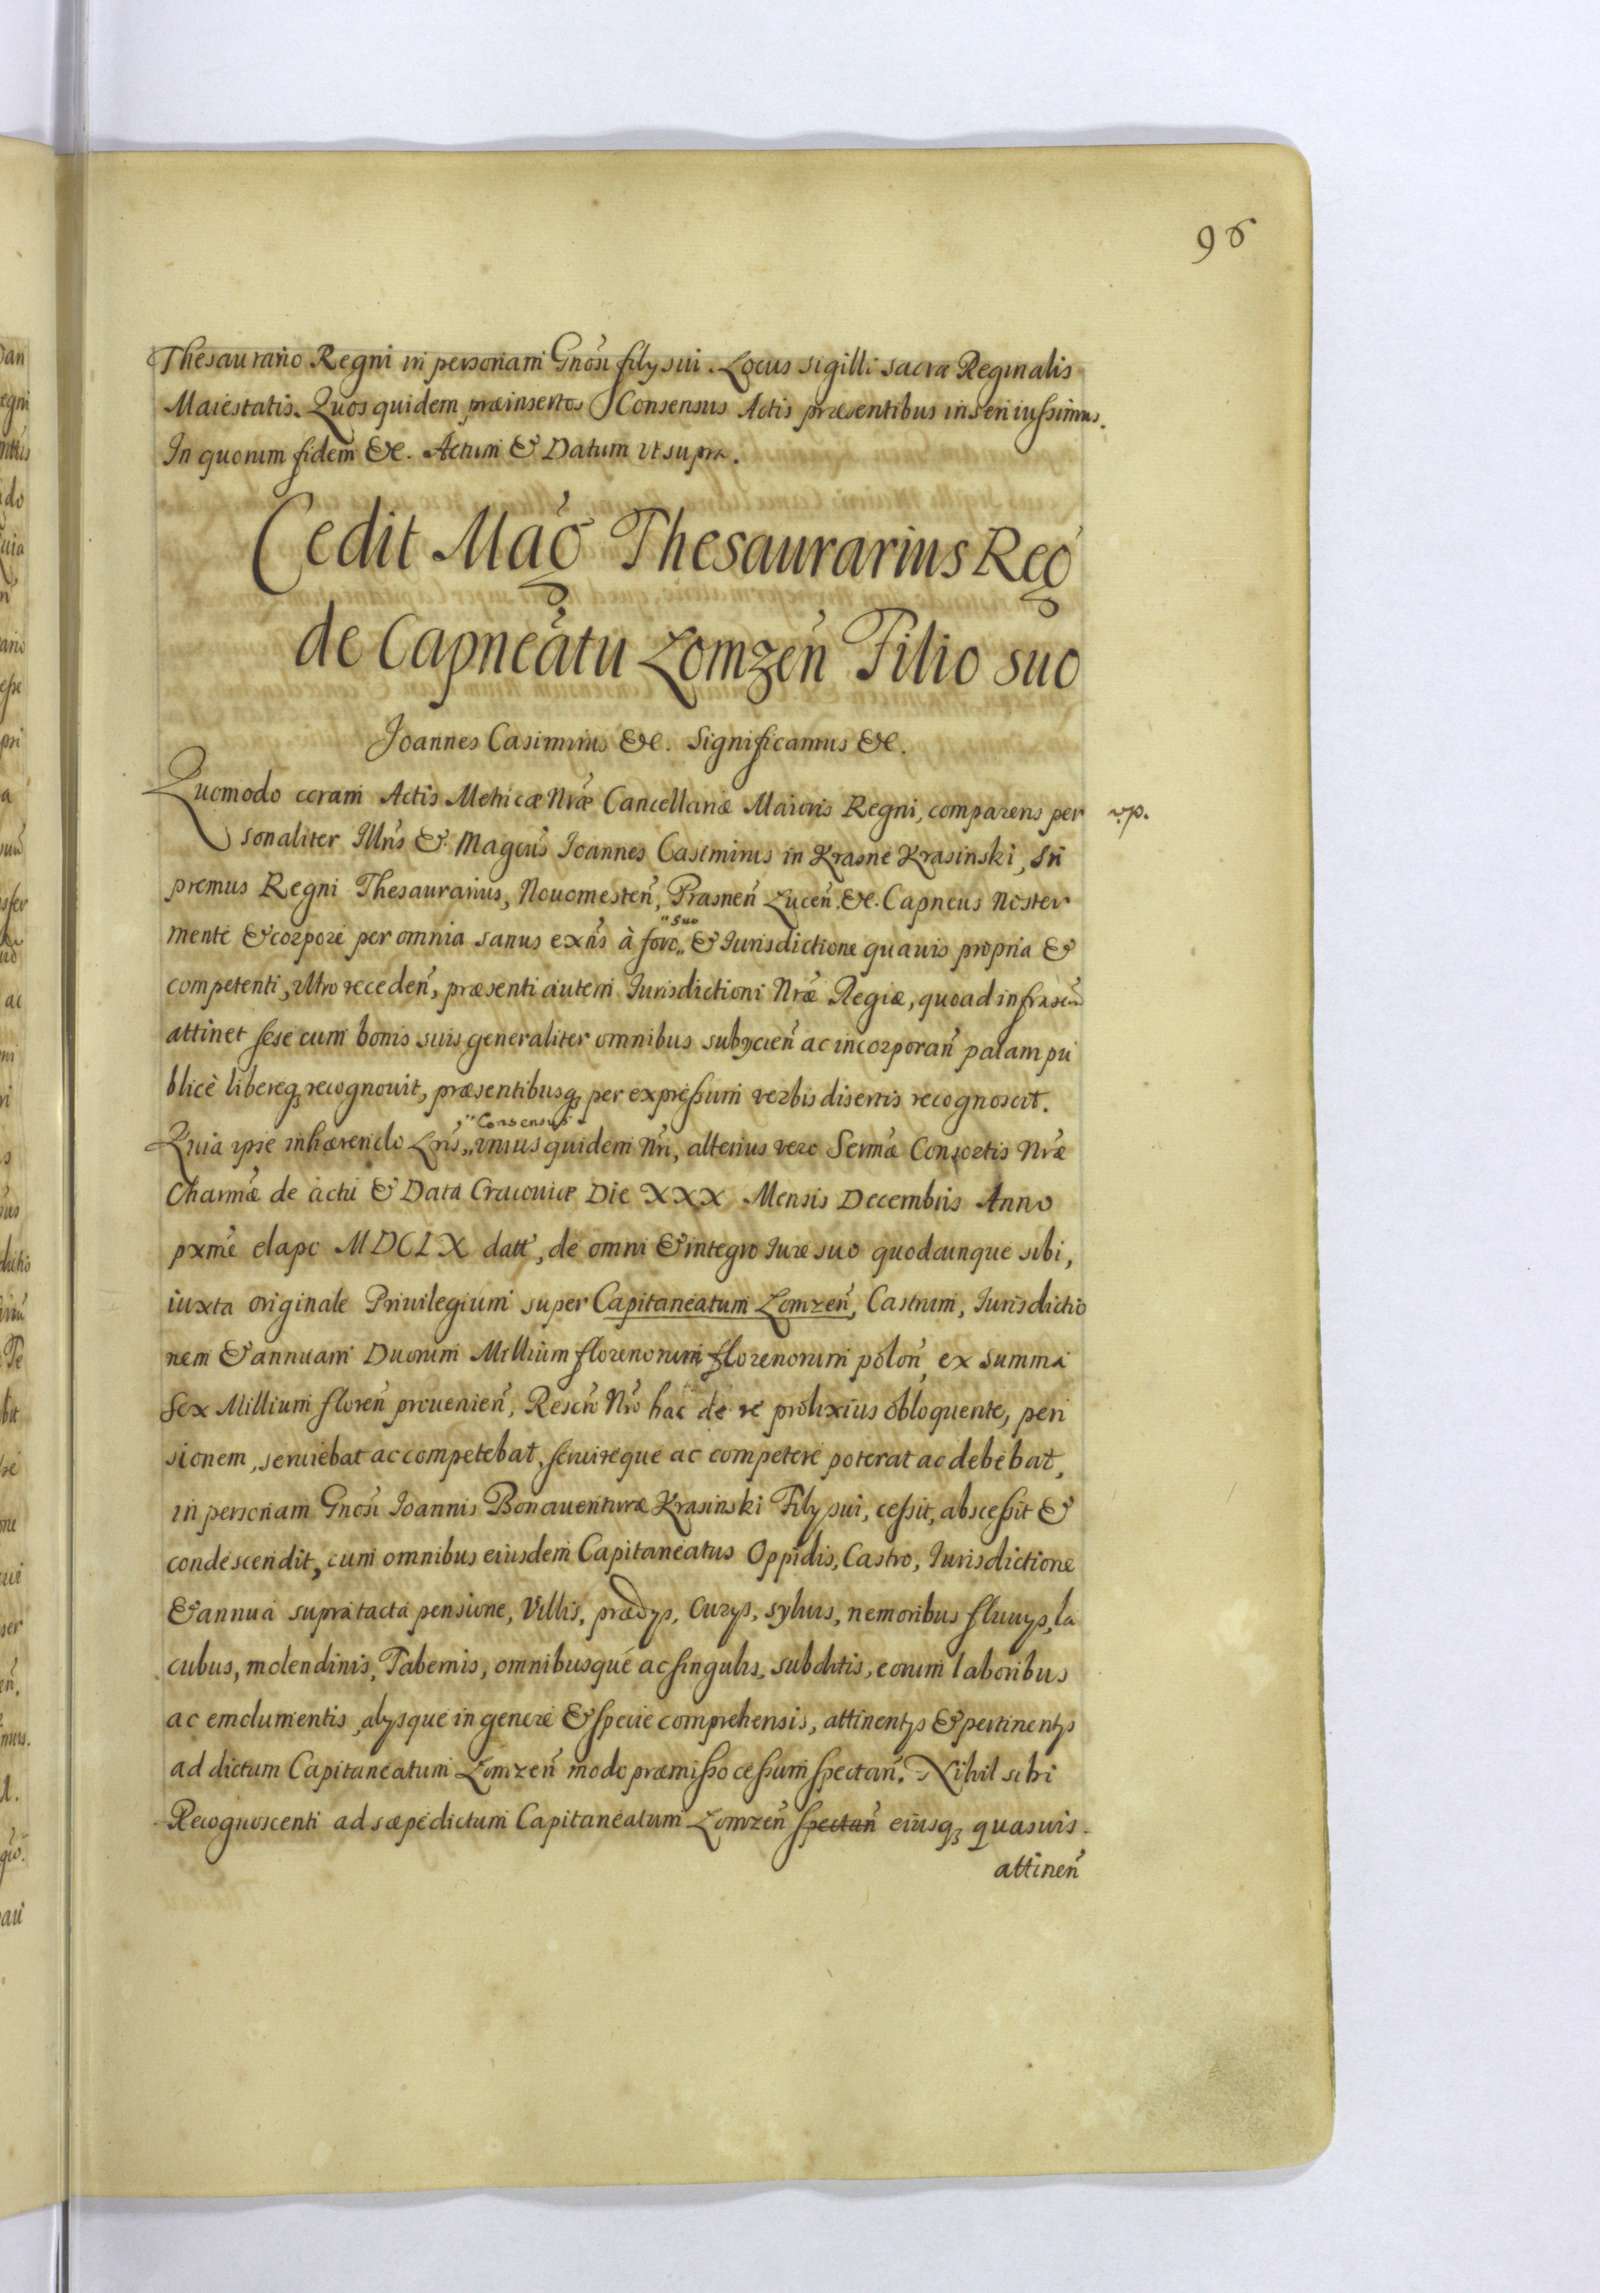 96
Thesaurario Regni in personam Gnosi filij sui. Locus sigilli sacræ Reginalis
Maiestatis. Quos quidem præinsertos Consensus Actis præsentibus inseri iussimus.
In quorum fidem &c. Actum & Datum ut supra.
Cedit Mag Thesaurarius Reg
de Capneatu Lomzen Filio suo
Joannes Casimirus &c. Significamus &c.
Quomodo coram Actis Metricæ Nræ Cancellariæ Maioris Regni, comparens per
sonaliter Illris & Magcus Joannes Casimirus in Krasne Krasinski, Su
premus Regni Thesaurarius, Nouomesten, Prasnen Lucen &c. Capneus Noster
mente & corpore per omnia sanus exns à foro „suo & Iurisdictione quauis propria &
competenti, ultro receden, præsenti autem Iurisdictioni Nræ Regiæ, quoad infrascm
attinet sese cum bonis suis generaliter omnibus subijcien ac incorporan palam pu
blicè libereq recognouit, præsentibusq per expressum verbis disertis recognoscit.
Quia ipse inhærendo Lris „Consensus unius quidem Nri, alterius vero Sermæ Consortis Nræ
Charmæ de actu & Data Cracouiæ Die XXX Mensis Decembris Anno
pxme elapo MDCLX datt, de omni & integro Iure suo quodcunque sibi,
iuxta originale Priuilegium super Capitaneatum Lomzen, Castrum, Iurisdictio
nem & annuam Duorum Millium florenorum florenorum polon ex summa
Sex Millium floren prouenien, Rescro Nro hac de re prolixius obloquente, pen
sionem, seruiebat ac competebat, seruireque ac competere poterat ac debebat,
in personam Gnosi Ioannis Bonauenturæ Krasinski Filij sui, cessit, abscessit &
condescendit, cum omnibus eiusdem Capitaneatus Oppidis, Castro, Iurisdictione
& annua supratacta pensione, Villis, prædijs, Curijs, syluis, nemoribus fluuijs, la
cubus, molendinis, Tabernis, omnibusque ac singulis, subditis, eorum laboribus
ac emolumentis, alijsque in genere & specie comprehensis, attinentijs & pertinentijs
ad dictum Capitaneatum Lomzen modo præmisso cessum spectan. Nihil sibi
Recognoscenti ad sæpedictum Capitaneatum Lomzen spectan eiusq quasuis
attinen